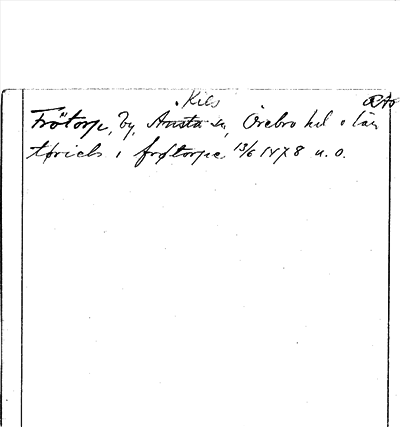 Kils
Frötorp, by, Ansta sn, Örebro hd o län
i frøtorpe 13/6 1478 u. o.